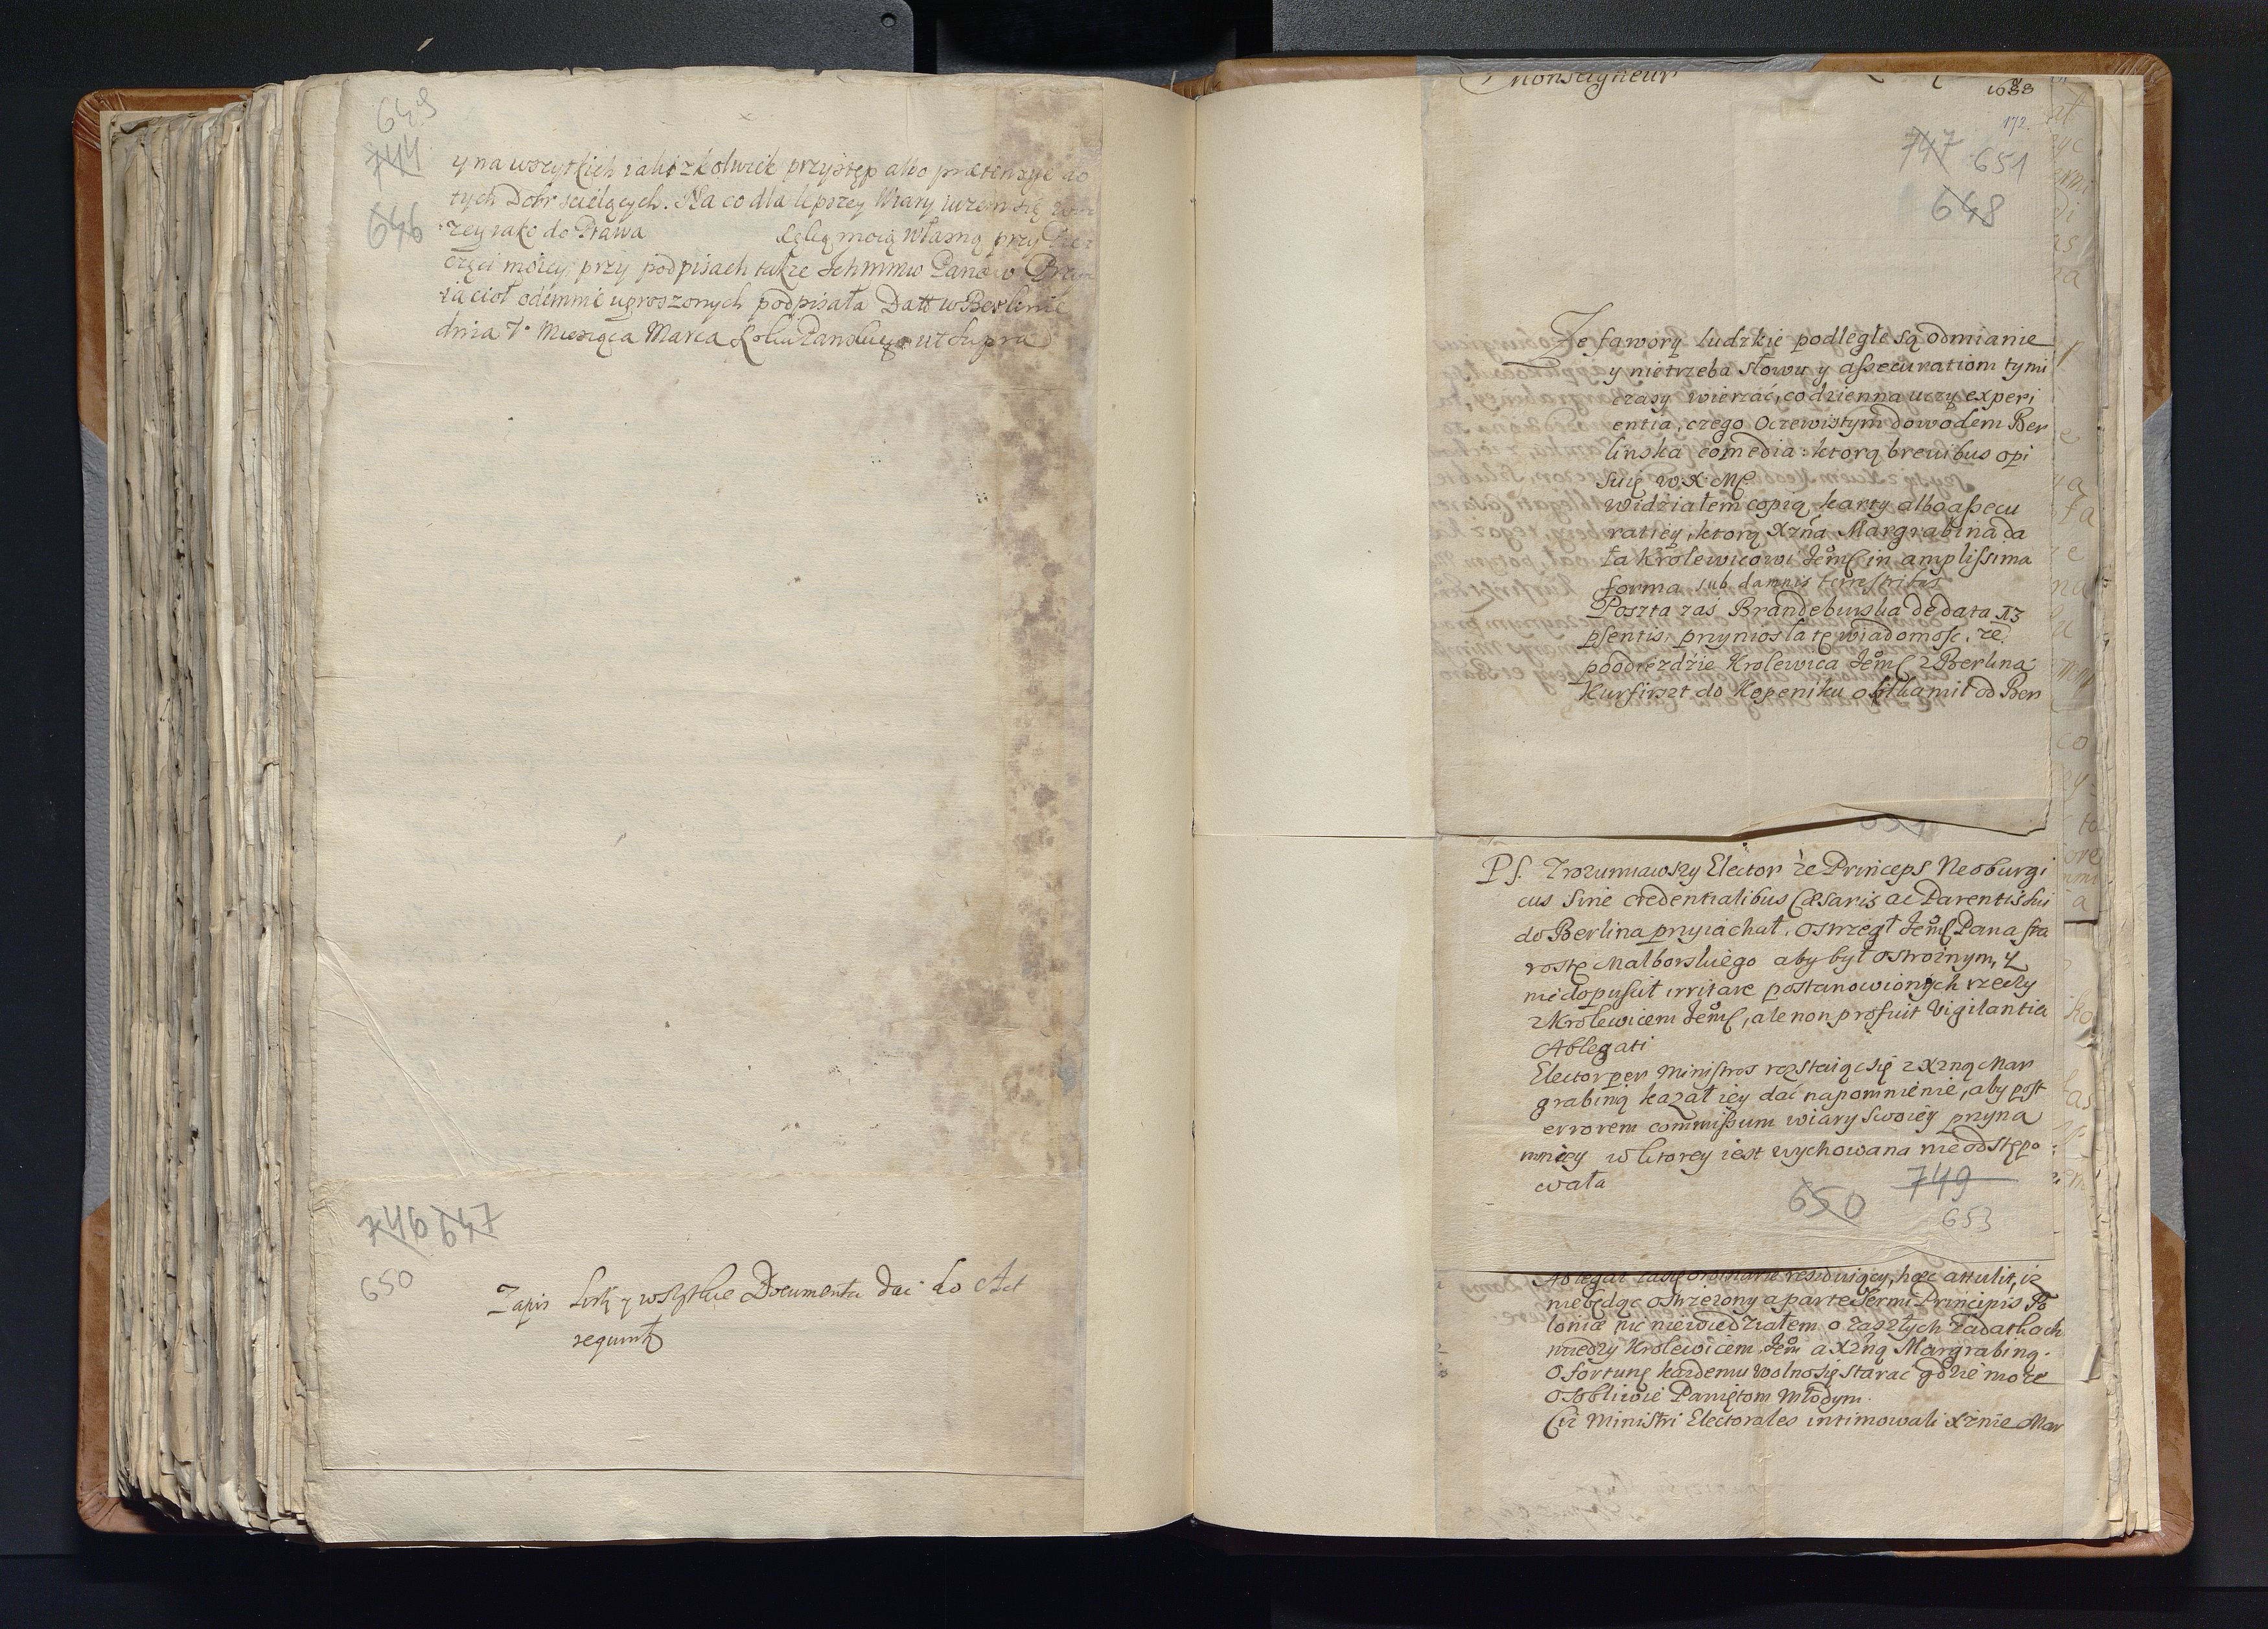 649
744
646
y na wszytkich iakiżkolwiek przystęp albo prætensye do
tych Dobr scielących. Na co dla lepszey Wiary
rzey iako do Prawa ręką moią własną przy
częci moiey, przy podpisach także Ichmmw Panow
iacioł odemnie uproszonych podpisała Datt w Berlinie
dnia 7° Miesiąca Marca Roku Panskiego ut supra
746 647
650
Zapis y wszytkie Documenta dać do Act
Monseigneur
1688
172.
747 651
648
Ze fawory ludzkie podległe są odmianie
y nietrzeba słowu y assecuratiom tymi
czasy wierzać, codzienna uczy experi
entia, czego Oczewistym dowodem Ber
linska comedia: ktorą brevibus opi
suię W.X.Mć.
Widziałem copią karty albo assecu
ratiey, ktorą Xżna Margrabina da
ła Krolewicowi Jem̊ć in amplissima
forma sub damnis terrestribus
Poszta zaś Brandeburska de data 13
psentis, przyniosła tę wiadomość, że
po odiezdzie Krolewica Jem̊ć z Berlina
Kurfirszt do Kopeniku o kilka mil od Ber
PS. Zrozumiawszy Elector że Princeps Neoburgi
cus sine credentialibus Cæsaris ac Parentis sui
do Berlina przyiachał, ostrzegł Jem̊ć Pana sta
rostę Malborskiego aby był ostrożnym, y
nie dopuscił irritare postanowionych rzeczy
z Krolewicem Jem̊ć, ale non profuit vigilantia
Ablegati
Elector per Ministros rozstaiąc się z Xżną Mar
grabiną kazał iey dać napomnienie, aby post
errorem commissum wiary swoiey przyna
mniey w ktorey iest wychowana nie odstępo
wała
650 749
653
Ablegat Cæs. ordinarie residuiący, hæc attulit, iż
nie będąc ostrzeżony a parte Sermi Principis Po
loniæ nic niewiedziałem o zaszłych zadatkach
miedzy Krolewicem Jem̊ a Xżną Margrabiną.
O fortunę każdemu wolno się starać gdzie może
Osobliwie Paniętom Młodym.
Ciż Ministri Electorales intimowali Xżnie Mar